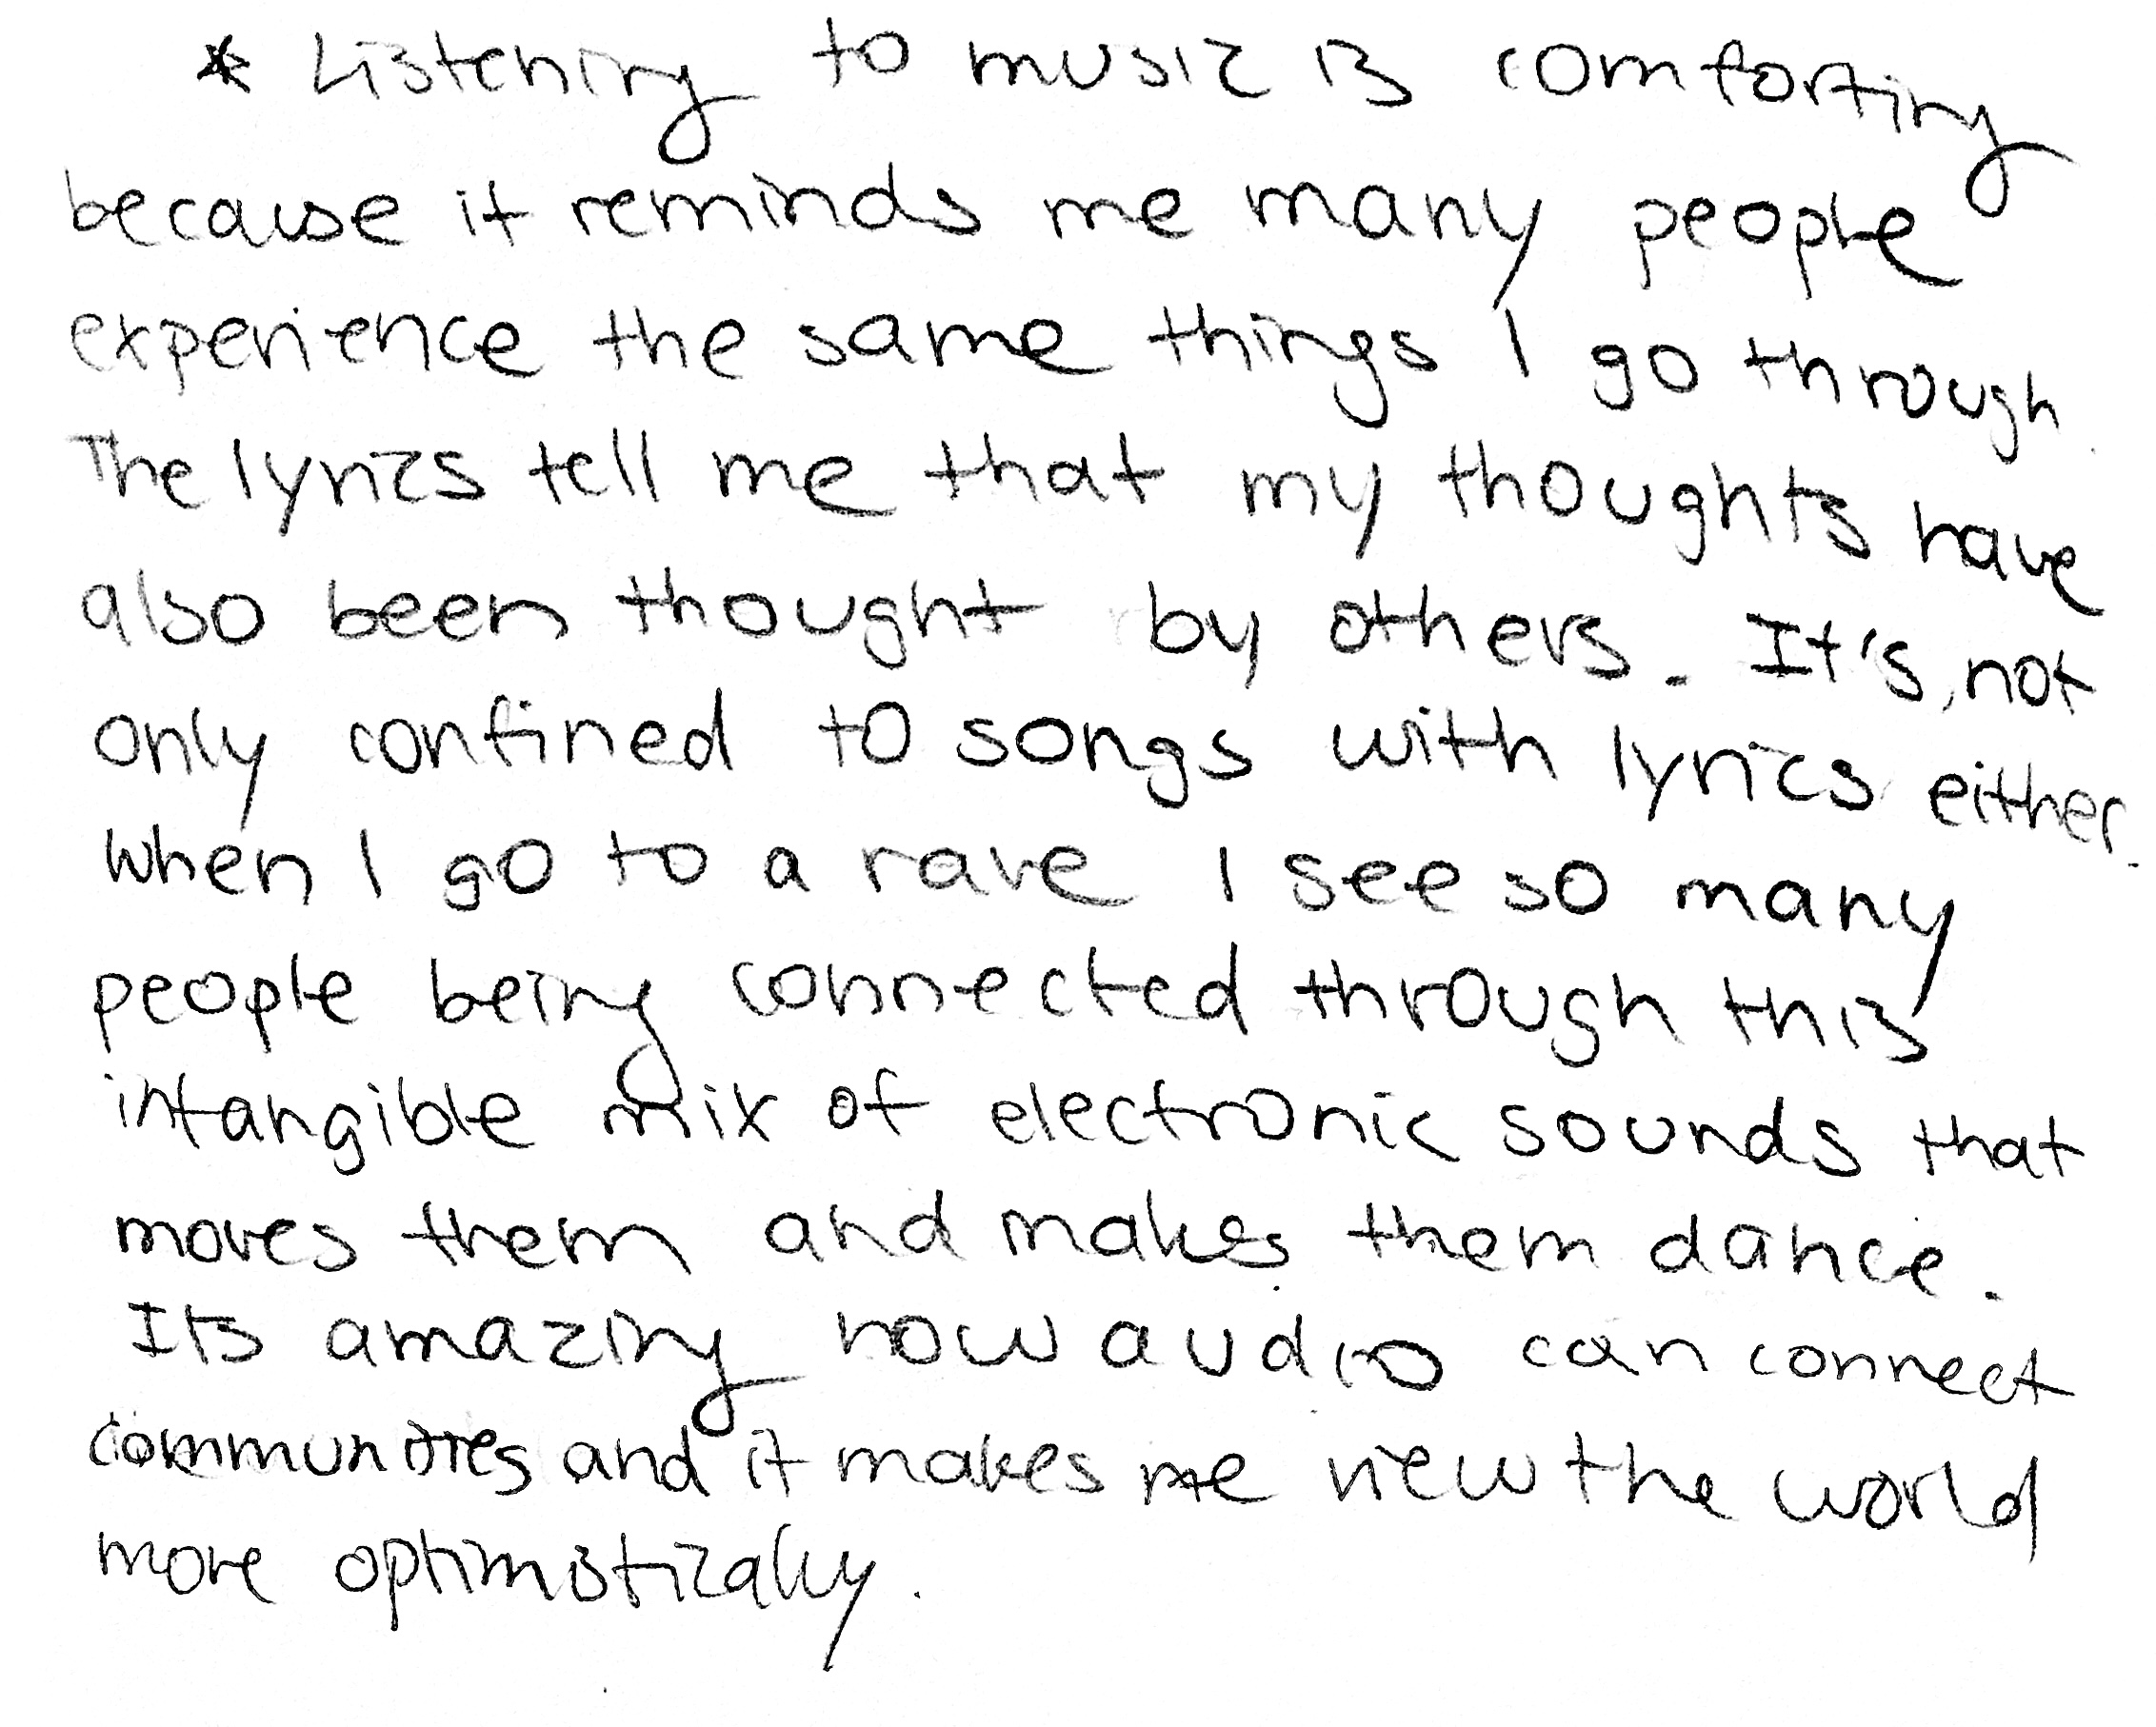 * Listening to music is comforting
because it reminds me many people
experience the same things I go through.
The lyrics tell me that my thoughts have
also been thought by others. It's, not
only confined to songs with lyrics either.
When I go to a rave I see so many
people being connected through this
intangible mix of electronic sounds that
moves them and makes them dance.
Its amazing how audio can connect
communities and it makes me view the world
more optimistically.